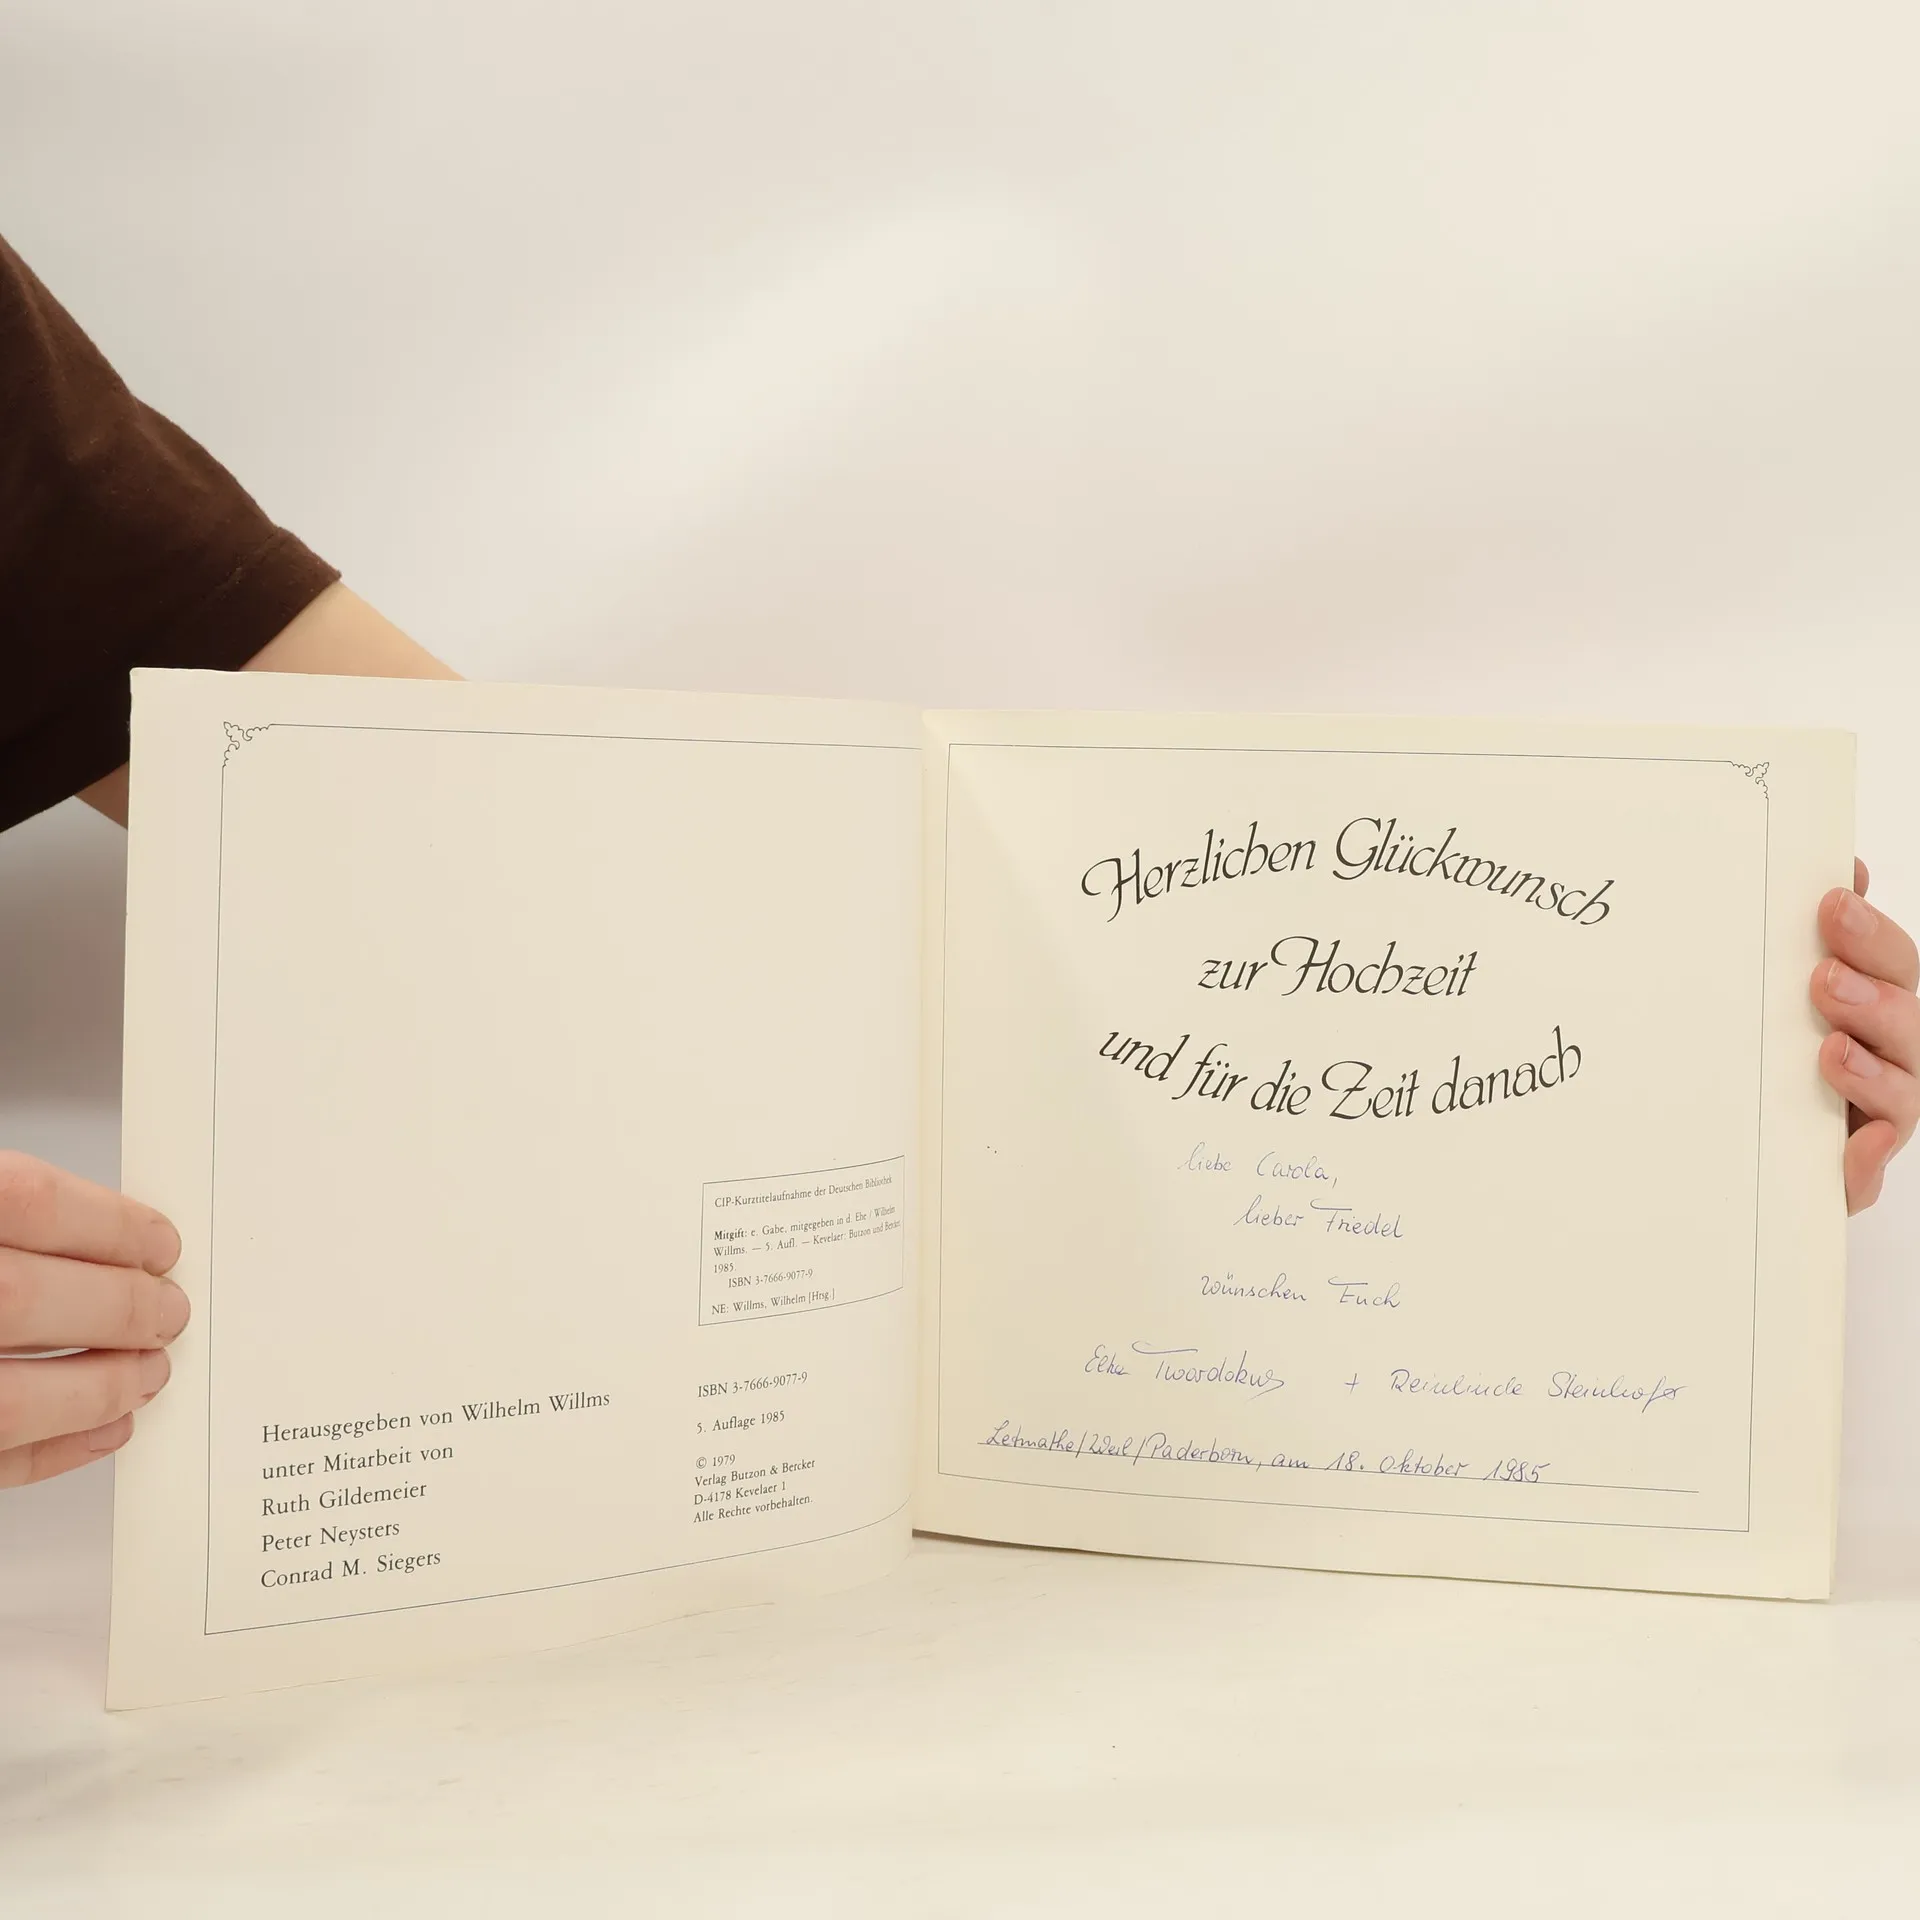 CIP-Kurztitelaufnahme der Deutschen Bibliothek
Mitgift: e. Gabe, mitgegeben in d. Ehe / Wilhelm
Willms. — 5. Aufl. — Kevelaer: Butzon und Bercker
1985.
ISBN 3-7666-9077-9
NE: Willms, Wilhelm [Hrsg.]
Herausgegeben von Wilhelm Willms
unter Mitarbeit von
Ruth Gildemeier
Peter Neysters
Conrad M. Siegers
ISBN 3-7666-9077-9
5. Auflage 1985
© 1979
Verlag Butzon & Bercker
D-4178 Kevelaer 1
Alle Rechte vorbehalten.
Herzlichen Glückwunsch
zur Hochzeit
und für die Zeit danach
liebe Carola,
lieber Friedel
wünschen Euch
+ Steinhofer
Letmathe/Weil/Paderborn, am 18. Oktober 1985